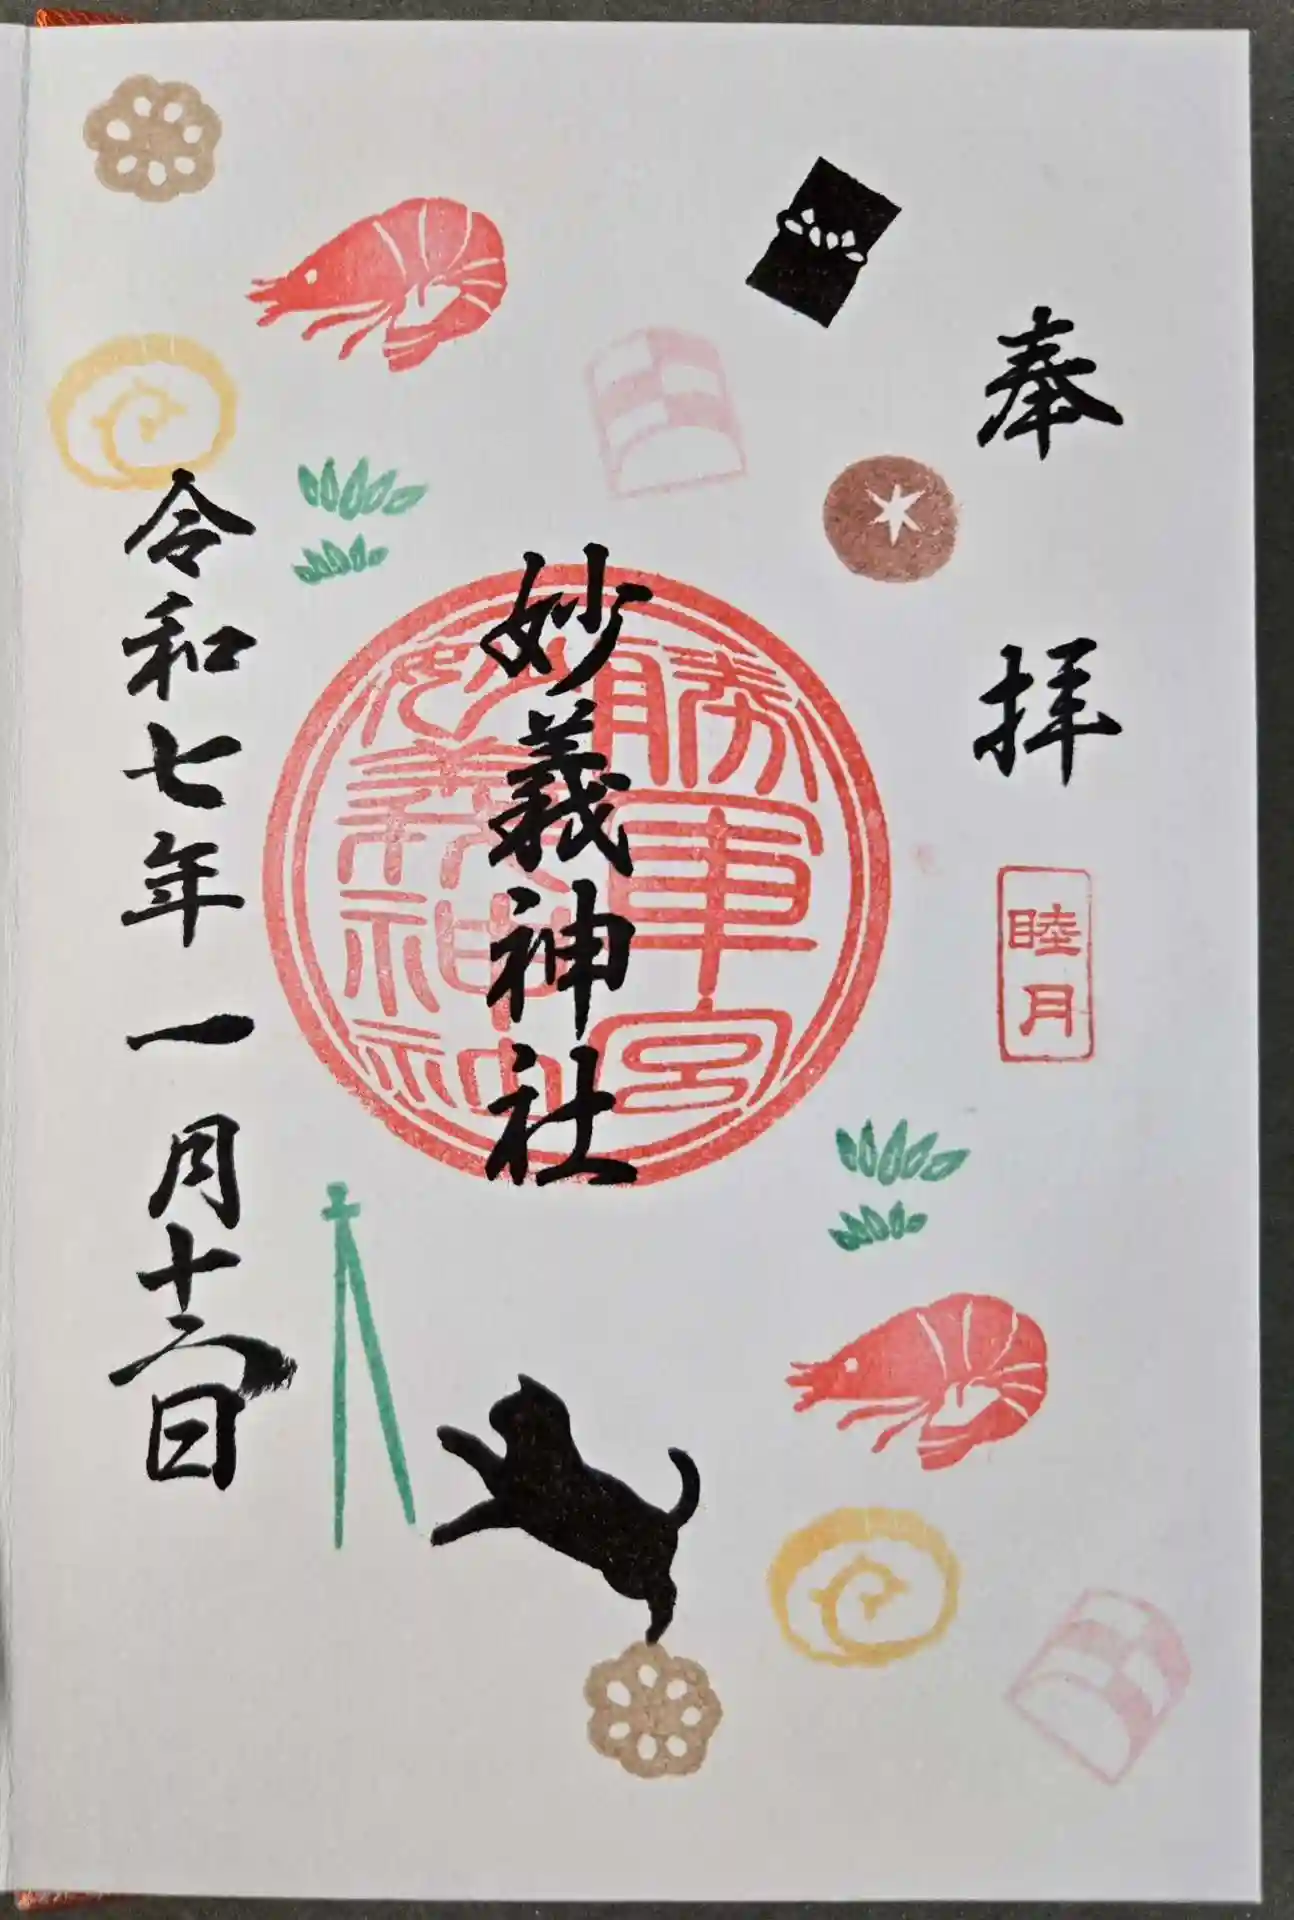 奉拝
睦月
妙義神社
勝軍宮
妙義神社
令和七年一月十二日